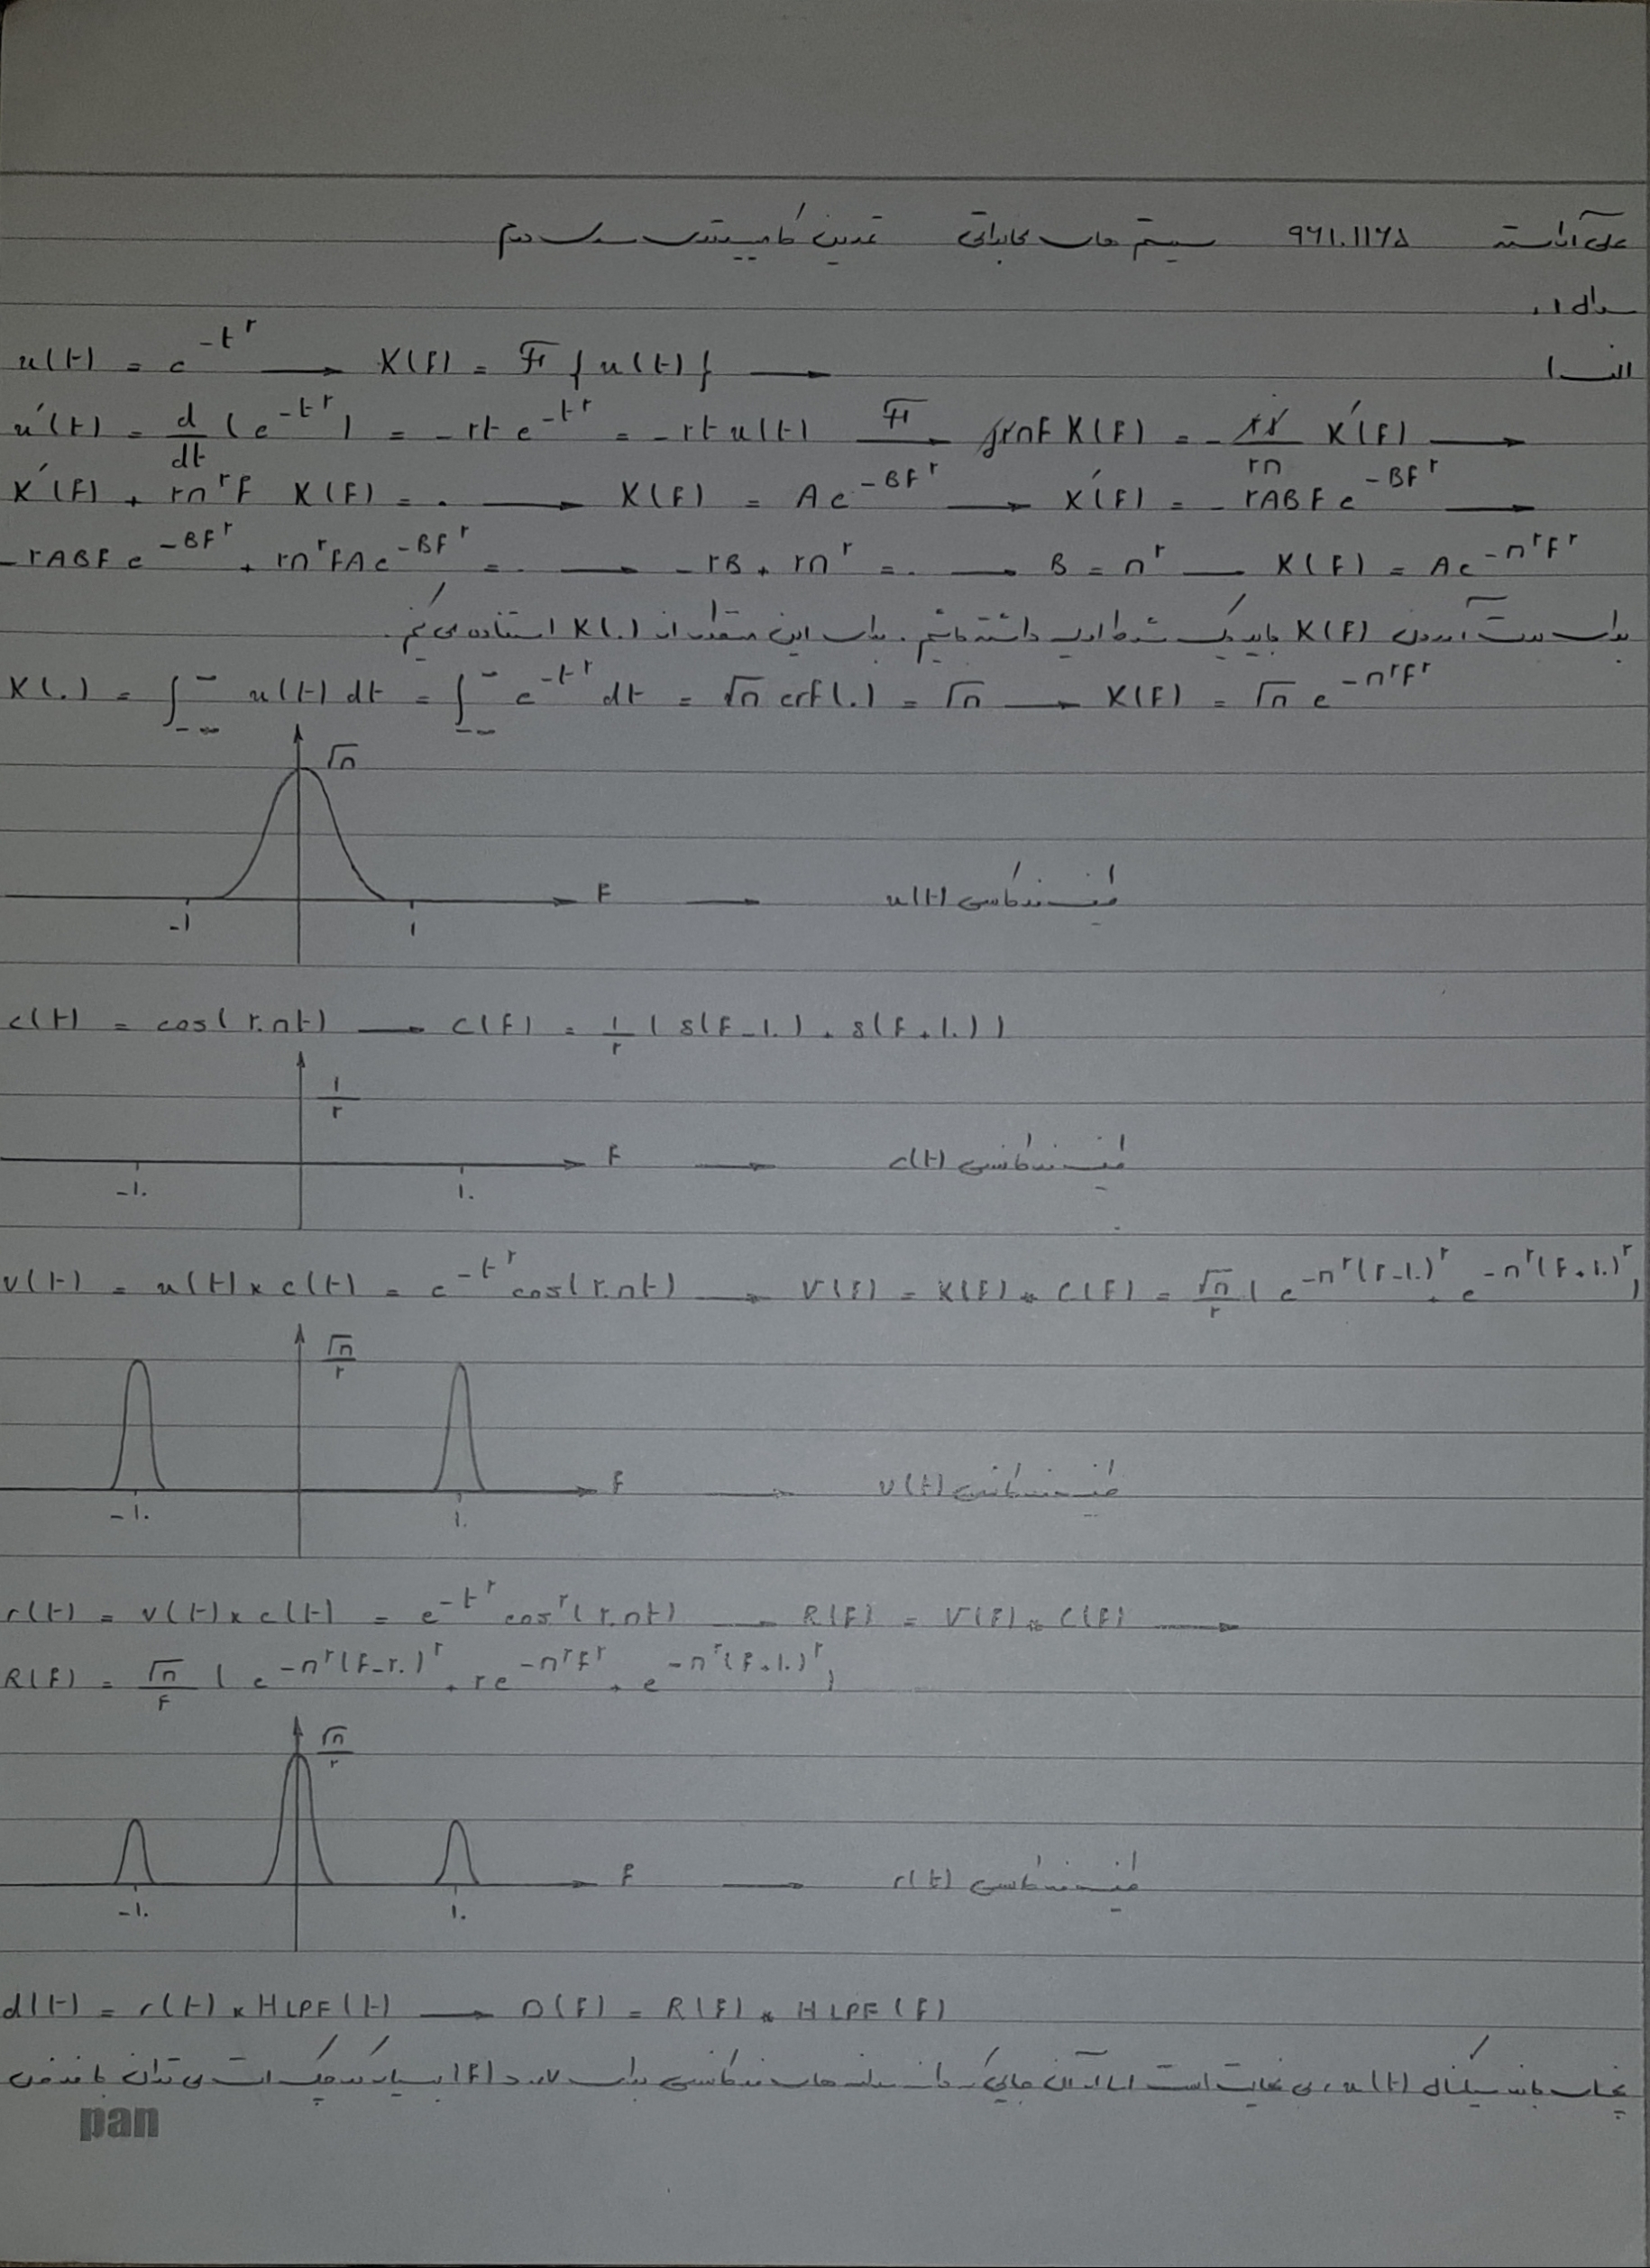 علی آراسته ۹۶۱۰۱۱۶۵ سیستم های مخابراتی تمرین کامپیوتری سری دوم
سوال ۱.
الف)
x(t) = e^-t^۲ → X(f) = F{x(t)} →
x'(t) = d/dt (e^-t^۲) = -۲t e^-t^۲ = -۲t x(t) F→ j۲πf X(f) = -۲j/۲π X'(f) →
X'(f) + ۲π^۲f X(f) = ۰ → X(f) = A e^-Bf^۲ → X'(f) = -۲ABf e^-Bf^۲ →
-۲ABf e^-Bf^۲ + ۲π^۲fA e^-Bf^۲ = ۰ → -۲B + ۲π^۲ = ۰ → B = π^۲ → X(f) = A e^-π^۲f^۲
برای بدست آوردن X(f) باید یک شرط اولیه داشته باشیم. برای این منظور از X(۰) استفاده می کنیم.
X(۰) = ∫_-∞^∞ x(t) dt = ∫_-∞^∞ e^-t^۲ dt = √π erf(۰) = √π → X(f) = √π e^-π^۲f^۲
√π
-۱ ۱ f → طیف فرکانسی x(t)
c(t) = cos(۲۰πt) → C(f) = ۱/۲ (δ(f-۱۰) + δ(f+۱۰))
۱/۲
-۱۰ ۱۰ f → طیف فرکانسی c(t)
v(t) = x(t) × c(t) = e^-t^۲ cos(۲۰πt) → V(f) = X(f) * C(f) = √π/۲ (e^-π^۲(f-۱۰)^۲ + e^-π^۲(f+۱۰)^۲)
√π/۲
-۱۰ ۱۰ f → طیف فرکانسی v(t)
r(t) = v(t) × c(t) = e^-t^۲ cos^۲(۲۰πt) → R(f) = V(f) * C(f) →
R(f) = √π/۴ (e^-π^۲(f-۲۰)^۲ + ۲e^-π^۲f^۲ + e^-π^۲(f+۱۰)^۲)
√π/۲
-۱۰ ۱۰ f → طیف فرکانسی r(t)
d(t) = r(t) * HLPF(t) → D(f) = R(f) × HLPF(f)
پهنای باند سیگنال x(t)، بی نهایت است اما از آن جایی که دامنه مولفه های فرکانسی برای |f| بسیار کوچک است می توان با فرض
pan